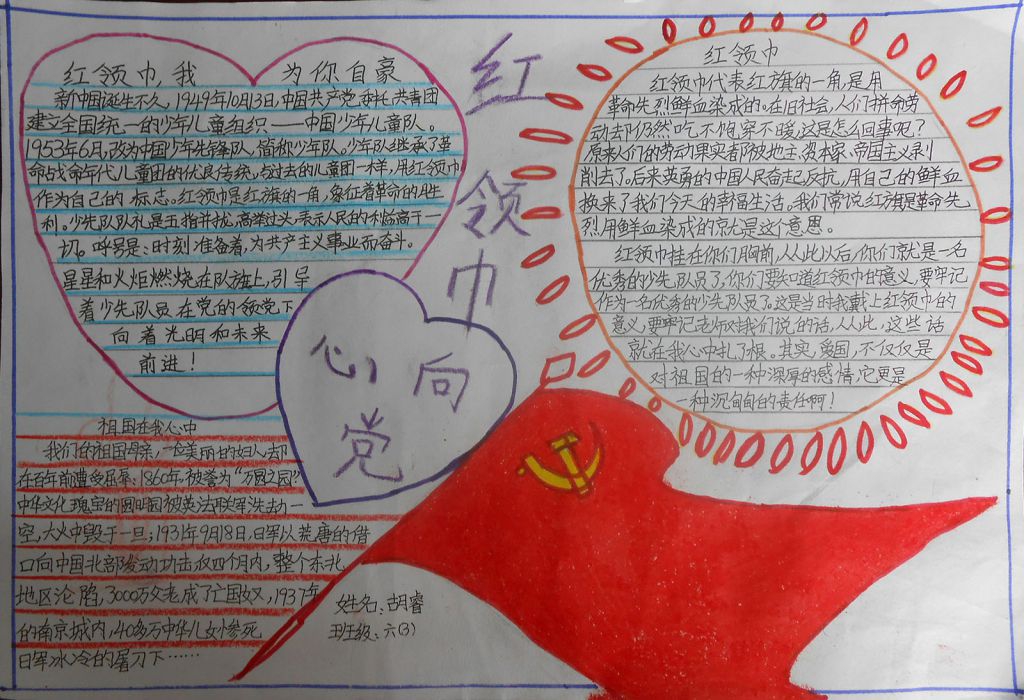 红领巾,我 为你自豪
新中国诞生不久,1949年10月13日,中国共产党委托共青团
建立全国统一的少年儿童组织——中国少年儿童队。
1953年6月,改为中国少年先锋队,简称少年队。少年队继承了革
命战命年代儿童团的优良传统,与过去的儿童团一样,用红领巾
作为自己的标志。红领巾是红旗的一角,象征着革命的胜
利。少先队队礼是五指并拢,高举过头,表示人民的利益高于一
切。呼号是:时刻准备着,为共产主义事业而奋斗。
星星和火炬燃烧在队旗上,引导
着少先队员在党的领党下
向着光明和未来
前进!
红领巾
心向党
红领巾
红领巾代表红旗的一角,是用
革命先烈鲜血染成的。在旧社会,人们拼命劳
动去却仍然吃不饱穿不暖,这是怎么回事呢?
原来人们的劳动果实者都被地主、资本家、帝国主义剥
削去了。后来英勇的中国人民奋起反抗,用自己的鲜血
换来了我们今天的幸福生活。我们常说红旗是革命先
烈用鲜血染成的就是这个意思。
红领巾挂在你们胸前,从此以后,你们就是一名
优秀的少先队员了,你们要知道红领巾的意义,要牢记
作为一名优秀的少先队员了。这是当时我戴上红领巾的
意义,要牢记老师对我们说的话,从此,这些话
就在我心中扎了根。其实,爱国,不仅仅是
对祖国的一种深厚的感情,它更是
一种沉甸甸的责任啊!
祖国在我心中
我们的祖国母亲,一位美丽的妇人,却
在百年前遭受屈辱:1860年,被誉为“万园之园”
中华文化瑰宝的圆明园被英法联军洗劫一
空,大火中毁于一旦;1931年9月18日,日军以荒唐的借
口向中国北部发动攻击仅四个月内,整个东北
地区沦陷,3000万父老成了亡国奴,1937年
的南京城内,40多万中华儿女惨死
日军冰冷的屠刀下……
姓名:胡睿
班级:六(3)